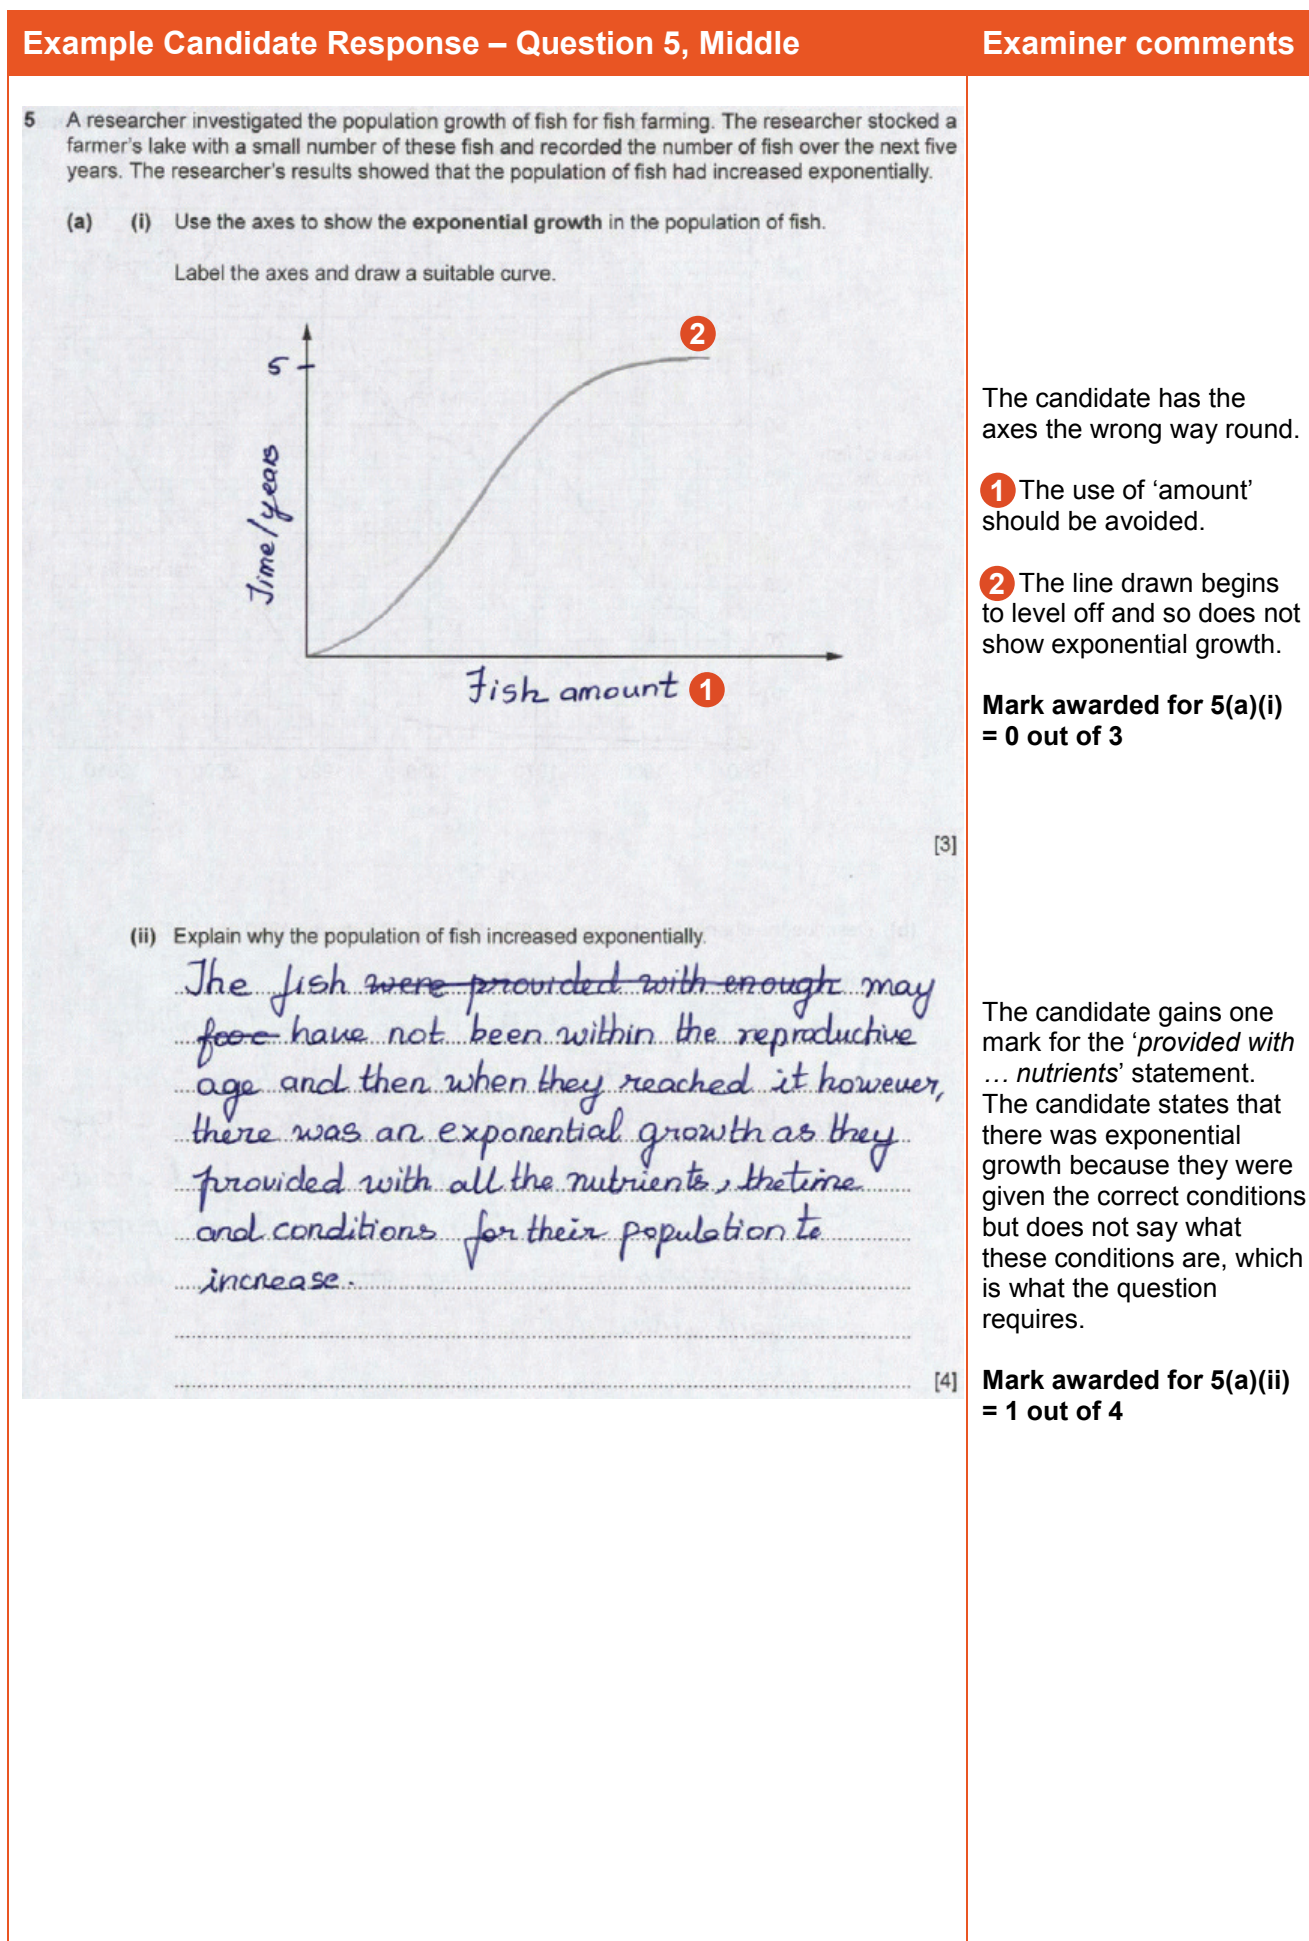 Example Candidate Response – Question 5, Middle
Examiner comments
5 A researcher investigated the population growth of fish for fish farming. The researcher stocked a
farmer's lake with a small number of these fish and recorded the number of fish over the next five
years. The researcher's results showed that the population of fish had increased exponentially.
(a) (i) Use the axes to show the exponential growth in the population of fish.
Label the axes and draw a suitable curve.
2
5
Time/years
Fish amount 1
[3]
(ii) Explain why the population of fish increased exponentially.
The fish were provided with enough may
have not been within the reproductive
age and then when they reached it however,
there was an exponential growth as they
provided with all the nutrients, the time
and conditions for their population to
increase.
[4]
The candidate has the
axes the wrong way round.
1 The use of ‘amount’
should be avoided.
2 The line drawn begins
to level off and so does not
show exponential growth.
Mark awarded for 5(a)(i)
= 0 out of 3
The candidate gains one
mark for the ‘provided with
… nutrients’ statement.
The candidate states that
there was exponential
growth because they were
given the correct conditions
but does not say what
these conditions are, which
is what the question
requires.
Mark awarded for 5(a)(ii)
= 1 out of 4